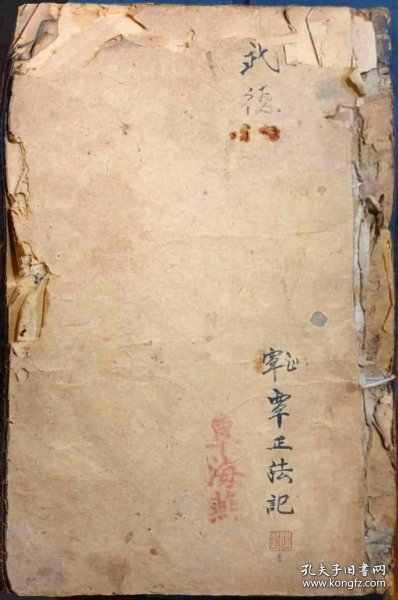 武德
覃正法記
覃海燕
孔夫子旧书网
www.kongfz.com